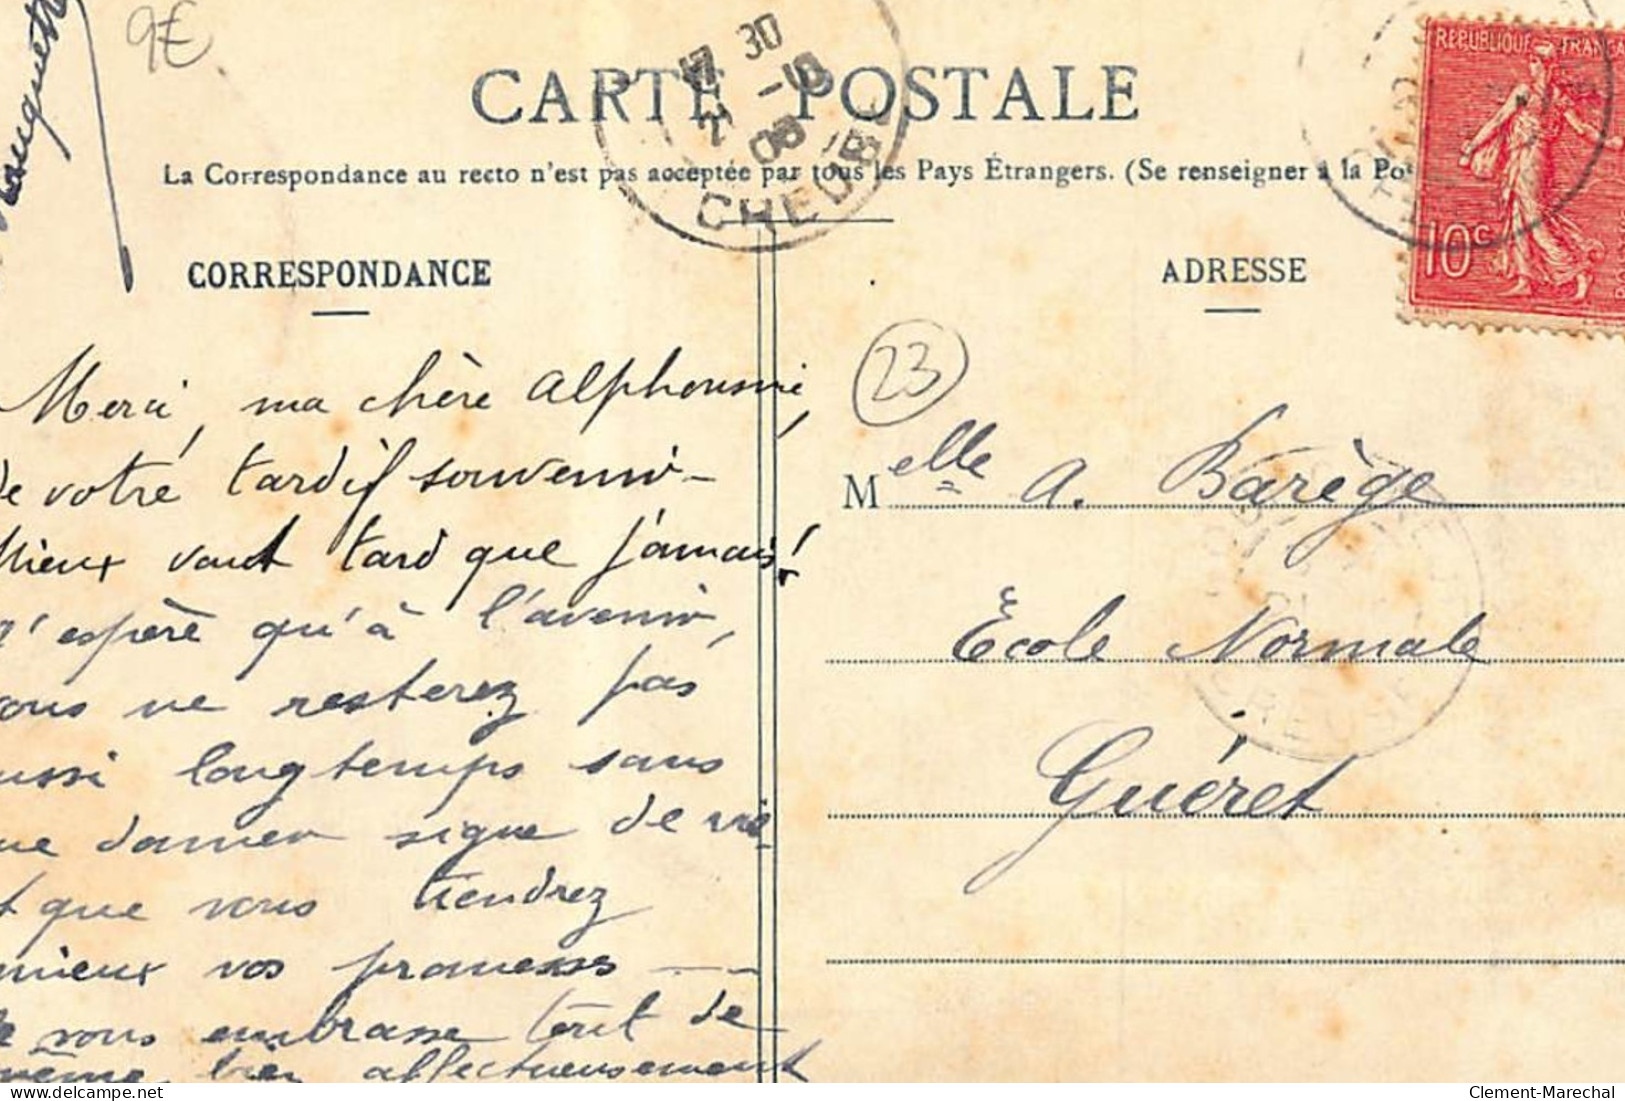 9€
CARTE POSTALE
17 30
08
CREUSE
La Correspondance au recto n'est pas acceptée par tous les Pays Étrangers. (Se renseigner à la Po
REPUBLIQUE FRANÇA
10c
CORRESPONDANCE
Merci, ma chère Alphonsine,
de votre tardif souvenir -
Mieux vaut tard que jamais!
J'espère qu'à l'avenir,
vous ne resterez pas
ussi longtemps sans
me donner signe de vie
t que vous tiendrez
mieux vos promesses - -
Je vous embrasse tout de
même bien affectueusement
ADRESSE
23
Melle A. Barège
Ecole Normale
Guéret
CREUSE
delcampe.net
Clement-Marechal